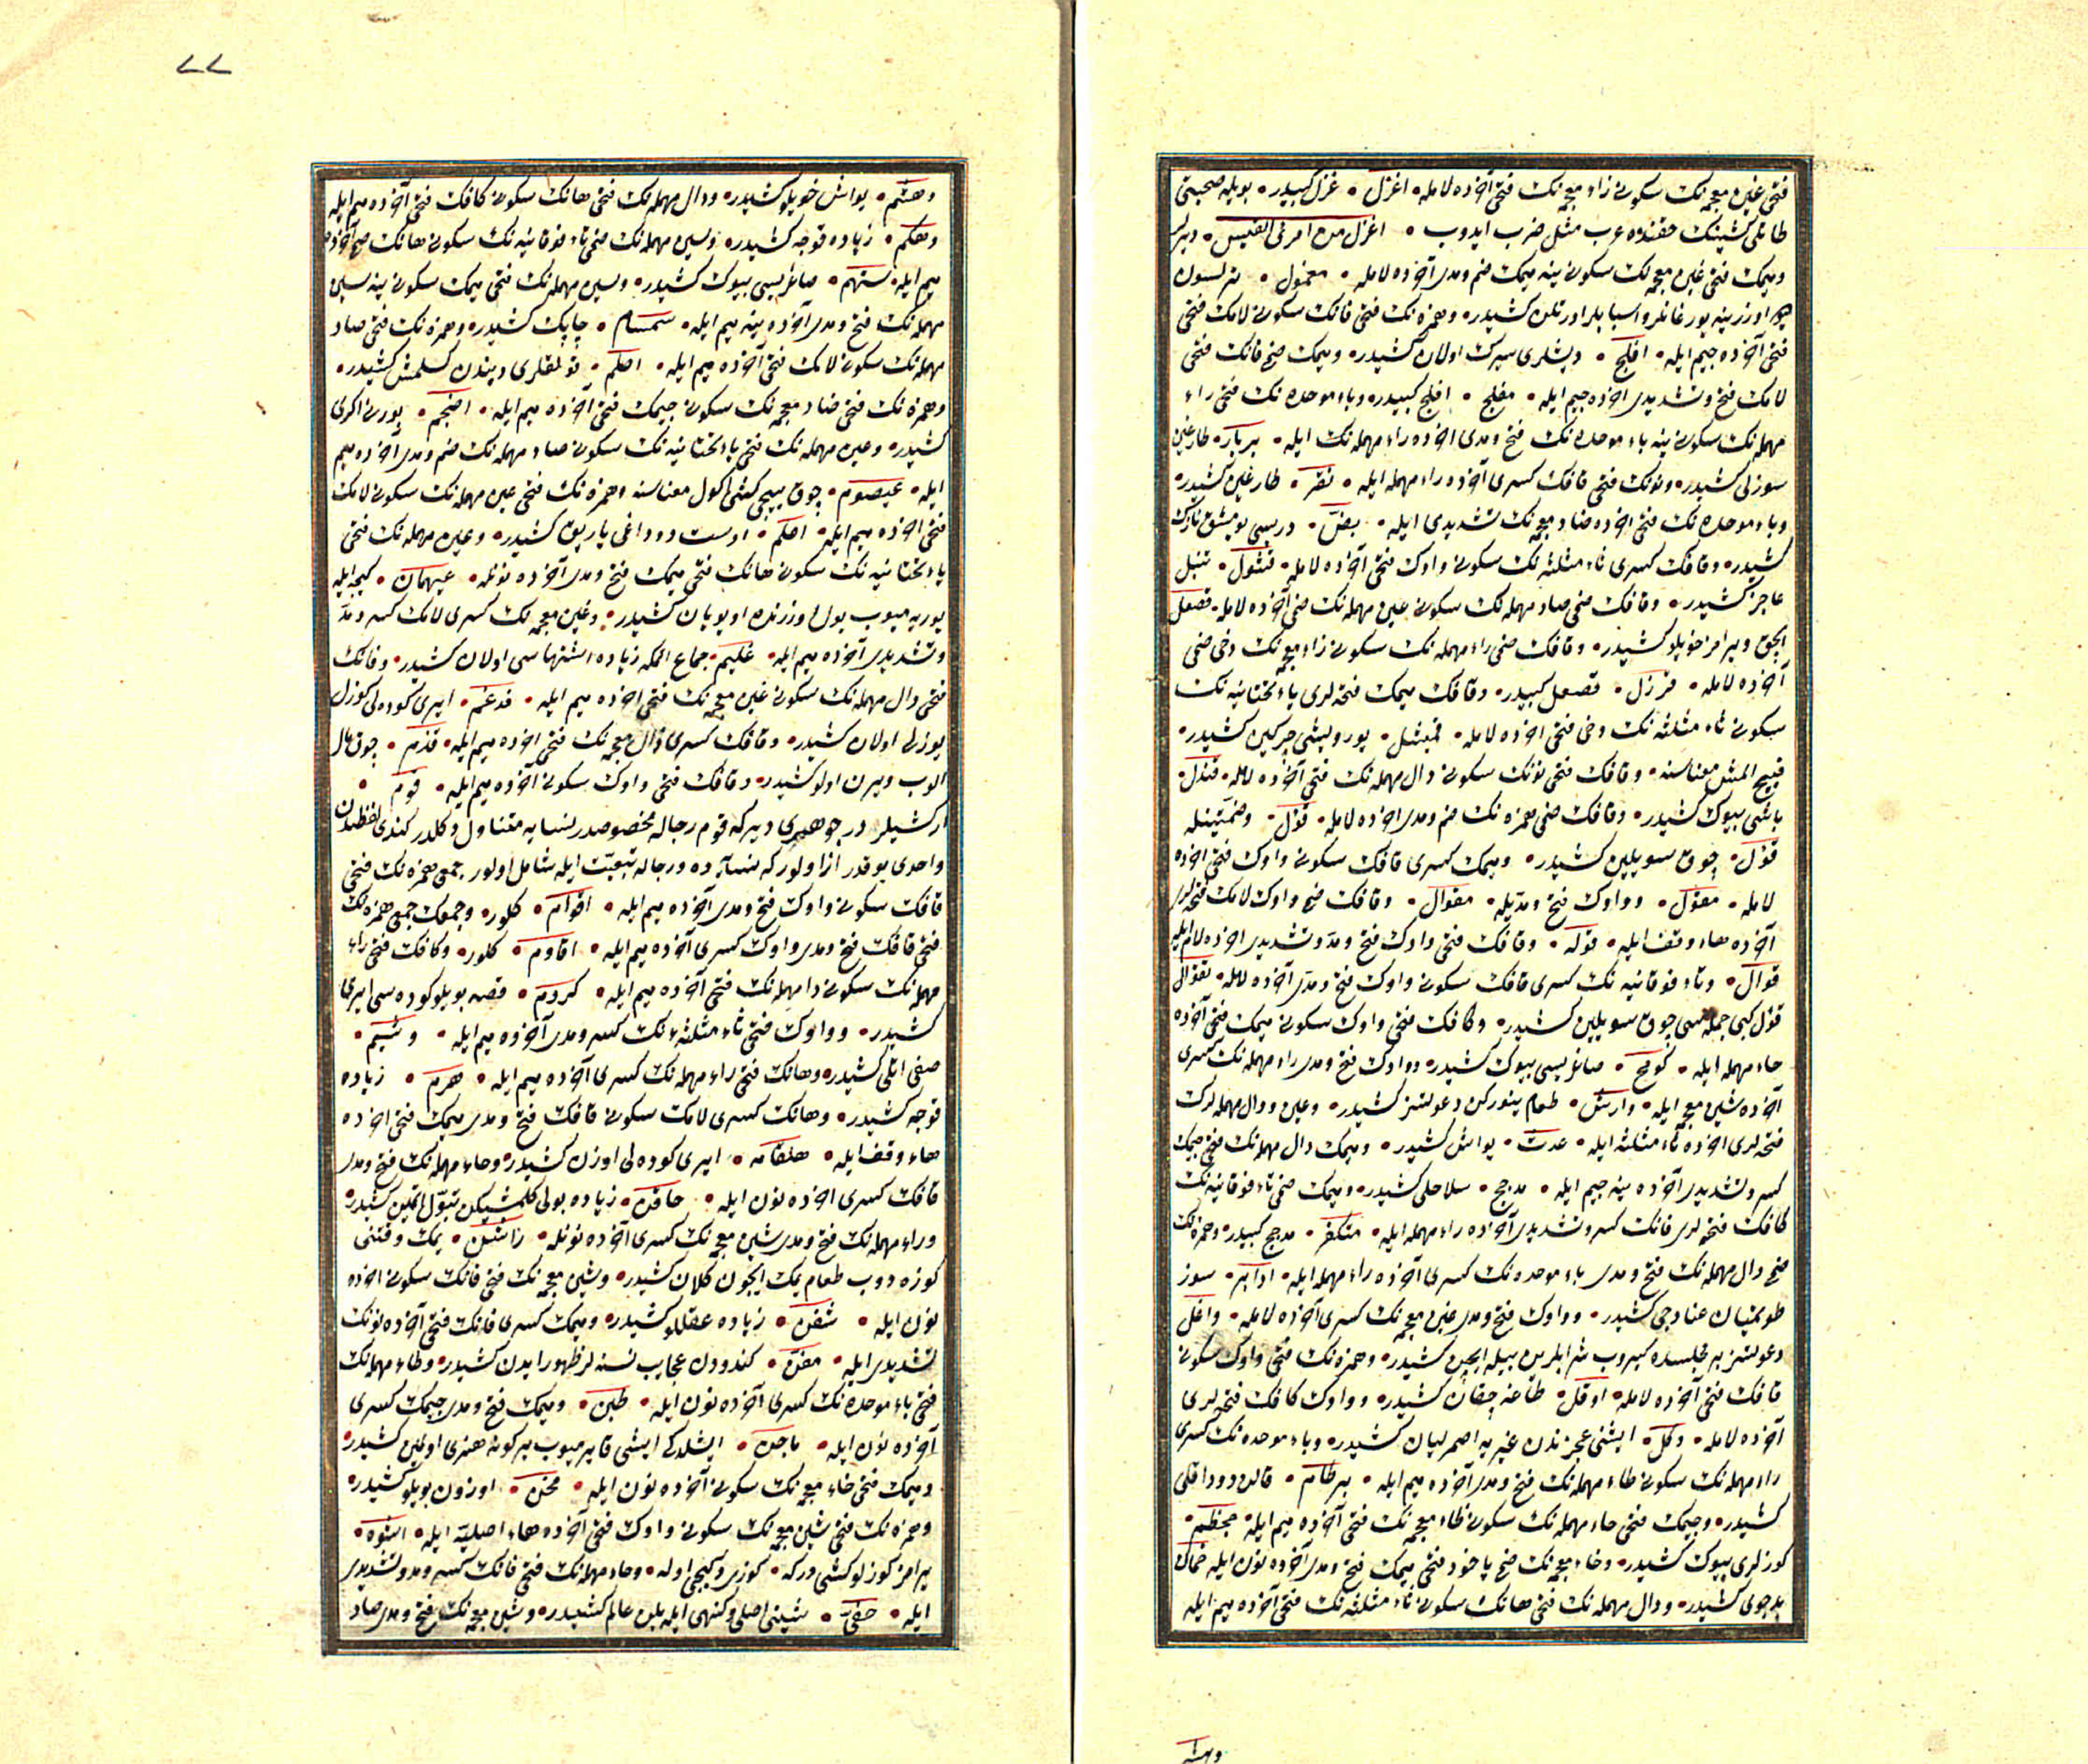 فتحی غین معجمه نك سكونی زاء معجمه نك فتحی آخرده لامله اغزل غزل كبیدر بویله صحبتی
طاتلی كشینك حقنده عرب مثل ضرب ایدوب اغزل من امرئ القیس دیرلر
ومیمك فتحی غین معجمه نك سكونی ینه میمك ضم ومدی آخرده لامله
اوزرینه یورغانلر واسبابلر اورتلن كشیدر وهمزه نك فتحی فانك سكونی لامك فتحی
آخرده جیم ایله افلج دیشلری سیرك اولان كشیدر ومیمك ضمی فانك فتحی
لامك فتح وتشدیدی آخرده جیم ایله مفلج افلج كبیدر وباء موحده نك فتحی راء
مهمله نك سكونی ینه باء موحده نك فتح ومدی آخرده راء مهمله نك ایله بربار طارغین
سوزلی كشیدر ونونك فتحی قافك كسری آخرده راء مهمله ایله نقر طارغین كشیدر
وباء موحده نك فتحی آخرده ضاد معجمه نك تشدیدی ایله بض دریسی یومشق نازك
كشیدر وقافك كسری ثاء مثلثه نك سكونی واوك فتحی آخرده لامله قثول تنبل
عاجز كشیدر وقافك ضمی صاد مهمله نك سكونی عین مهمله نك ضمی آخرده لامله قصعل
آلچق ویرامز خویلو كشیدر وقافك ضمی راء مهمله نك سكونی زاء معجمه نك دخی ضمی
آخرده لامله قرزل قصعل كبیدر وقافك میمك فتحه لری یاء تختانیه نك
سكونی ثاء مثلثه نك دخی فتحی آخرده لامله قمیثل یورویشی چركین كشیدر
قبیح المشی معناسنه وقافك فتحی نونك سكونی دال مهمله نك فتحی آخرده لامله قندل
باشی بیوك كشیدر وقافك ضمی همزه نك ضم ومدی آخرده لامله قؤل وضمتینله
قول چوق سویلین كشیدر ومیمك كسری قافك سكونی واوك فتحی آخرده
لامله مقول وواوك فتح ومدیله مقوال وقافك ضم واوك لامك فتحه لری
آخرده هاء وقف ایله قوله وقافك فتحی واوك فتح ومد وتشدیدی آخرده لام ایله
قوال وتاء فوقانیه نك كسری قافك سكونی واوك فتح ومدی آخرده لامله تقوال
قول كبی جمله سی چوق سویلین كشیدر وكافك فتحی واوك سكونی میمك فتحی آخرده
حاء مهمله ایله كومح صاغریسی بیوك كشیدر وواوك فتح ومدی راء مهمله نك كسری
آخرده شین معجمه ایله وارش طعام ینوركن دعوتسز كشیدر وعین ودال مهمله لرك
فتحه لری آخرده ثاء مثلثه ایله عدث یواش كشیدر ومیمك دال مهمله نك فتحی جیمك
كسر وتشدیدی آخرده ینه جیم ایله مدجج سلاحلی كشیدر ومیمك ضمی تاء فوقانیه نك
كافك فتحه لری فانك كسر وتشدیدی آخرده راء مهمله ایله متكفر مدجج كبیدر وهمزه نك
ضمی دال مهمله نك فتح ومدی باء موحده نك كسری آخرده راء مهمله ایله ادابر سوز
طوتمیان عنادجی كشیدر وواوك فتح ومدی غین معجمه نك كسری آخرده لامله واغل
دعوتسز بر مجلسده كیروب شرابلرین بیله ایچین كشیدر وهمزه نك فتحی واوك سكونی
قافك فتحی آخرده لامله اوقل طاغه چیقان كشیدر وواوك كافك فتحه لری
آخرده لامله وكل ایشنی عجزندن غیریه اصمرلیان كشیدر وباء موحده نك كسری
راء مهمله نك سكونی طاء مهمله نك فتح ومدی آخرده میم ایله برطام قالن دوداقلی
كشیدر وجیمك فتحی حاء مهمله نك سكونی ظاء معجمه نك فتحی آخرده میم ایله جحظم
كوزلری بیوك كشیدر وخاء معجمه نك ضمی یاخود فتحی میمك فتح ومدی آخرده نون ایله خمان
یدجوی كشیدر ودال مهمله نك فتحی هانك سكونی ثاء مثلثه نك فتحی آخرده میم ایله
٧٧
دهثم یواش خویلو كشیدر ودال مهمله نك فتحی هانك سكونی كافك فتحی آخرده میم ایله
دهكم زیاده قوجه كشیدر وسین مهمله نك ضمی تاء فوقانیه نك سكونی هانك ضمی آخرده
میم ایله ستهم صاغریسی بیوك كشیدر وسین مهمله نك فتحی میمك سكونی ینه سین
مهمله نك فتح ومدی آخرده ینه میم ایله سمسام چاپك كشیدر وهمزه نك فتحی صاد
مهمله نك سكونی لامك فتحی آخرده میم ایله اصلم قولقلری دیبندن كسلمش كشیدر
وهمزه نك فتحی ضاد معجمه نك سكونی جیمك فتحی آخرده میم ایله اضجم بورنی اكری
كشیدر وعین مهمله نك فتحی یاء تختانیه نك سكونی صاد مهمله نك ضم ومدی آخرده میم
ایله عیصوم چوق ییجی كشی اكول معناسنه وهمزه نك فتحی عین مهمله نك سكونی لامك
فتحی آخرده میم ایله اعلم اوست دوداغی یاریق كشیدر وعین مهمله نك فتحی
یاء تختانیه نك سكونی هانك فتحی میمك فتح ومدی آخرده نونله عیهمان كیجه ایله
یوریمیوب یول اوزرنده اویویان كشیدر وغین معجمه نك كسری لامك كسر ومد
وتشدیدی آخرده میم ایله غلیم جماع ایتمكه زیاده اشتهاسی اولان كشیدر وقافك
فتحی دال مهمله نك سكونی غین معجمه نك فتحی آخرده میم ایله قدغم ایری كوده لی كوزل
یوزلی اولان كشیدر وقافك كسری ذال معجمه نك فتحی آخرده میم ایله قذم چوق مال
الوب ویرن اولو كشیدر وقافك فتحی واوك سكونی آخرده میم ایله قوم
ار كشیلر در جوهری دیر كه قوم رجاله مخصوصدر نسایه متناول دكلدر كندی لفظندن
واحدی یوقدر ازا اولور كه نساء ده ورجاله تبعیت ایله شامل اولور جمعی همزه نك فتحی
قافك سكونی واوك فتح ومدی آخرده میم ایله اقوام كلور وجمعك جمعی همزه نك
فتحی قافك فتح ومدی واوك كسری آخرده میم ایله اقاوم كلور وكافك فتحی راء
مهمله نك سكونی دا مهمله نك فتحی آخرده میم ایله كردم قصه بویلو كوده سی ایری
كشیدر وواوك فتحی ثاء مثلثه نك كسر ومدی آخرده میم ایله وثیم
صقی اتلی كشیدر وهانك فتحی راء مهمله نك كسری آخرده میم ایله هرم زیاده
قوجه كشیدر وهانك كسری لامك سكونی قافك فتح ومدی میمك فتحی آخرده
هاء وقف ایله هلقامه ایری كوده لی اوزن كشیدر وحاء مهمله نك فتح ومدی
قافك كسری آخرده نون ایله حاقن زیاده بولی كلمشیكن تبول ایتمین كشیدر
وراء مهمله نك فتح ومدی شین معجمه نك كسری آخرده نونله راشن یمك وقتنی
كوزه دوب طعام یمك ایچون كلان كشیدر وشین معجمه نك فتحی فانك سكونی آخرده
نون ایله شفن زیاده عقللو كشیدر ومیمك كسری فانك فتحی آخرده نونك
تشدیدی ایله مفن كندودن عجایب نسنه لر ظهور ایدن كشیدر وطاء مهمله نك
فتحی باء موحده نك كسری آخرده نون ایله طبن ومیمك فتح ومدی جیمك كسری
آخرده نون ایله ماجن ایشلدكی ایشی قایرمیوب بر كونه هنری اولمین كشیدر
ومیمك فتحی خاء معجمه نك سكونی آخرده نون ایله مخن اوزون بویلو كشیدر
وهمزه نك فتحی شین معجمه نك سكونی واوك فتحی آخرده هاء اصلیه ایله اشوه
یرامز كوزلو كشی دركه كوزی دكیجی اوله وحاء مهمله نك فتحی فانك كسر ومد وتشدیدی
ایله حفی شیئی اصلی وكنهی ایله بلن عالم كشیدر وشین معجمه نك فتح ومدی صاد